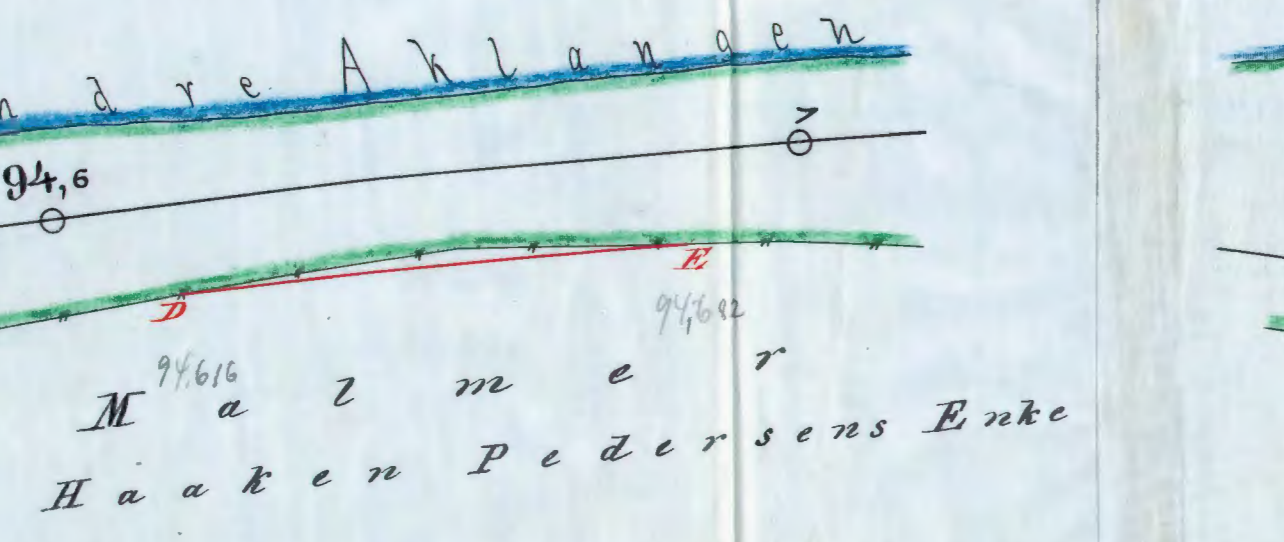 ndre Aklangen
7
94,6
E
D
94,682
94,616
Malmer
Haaken Pedersens Enke